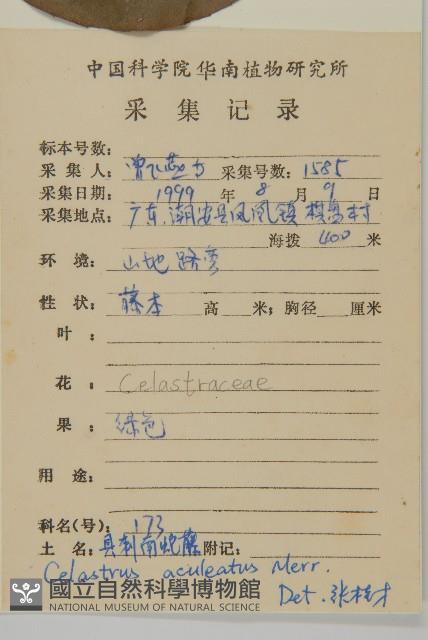 中国科学院华南植物研究所
采集记录
标本号数：
采集人：曾飞燕 采集号数：1585
采集日期：1999年8月9日
采集地点：广东.潮安县凤凰镇 村
海拨 400 米
环境：山地路旁
性状：藤本 高 米；胸径 厘米
叶：
花：Celastraceae
果：绿色
用途：
科名(号)：173
土名：具刺南蛇藤 附记：
Celastrus aculeatus Merr.
Det. 张桂才
國立自然科學博物館
NATIONAL MUSEUM OF NATURAL SCIENCE